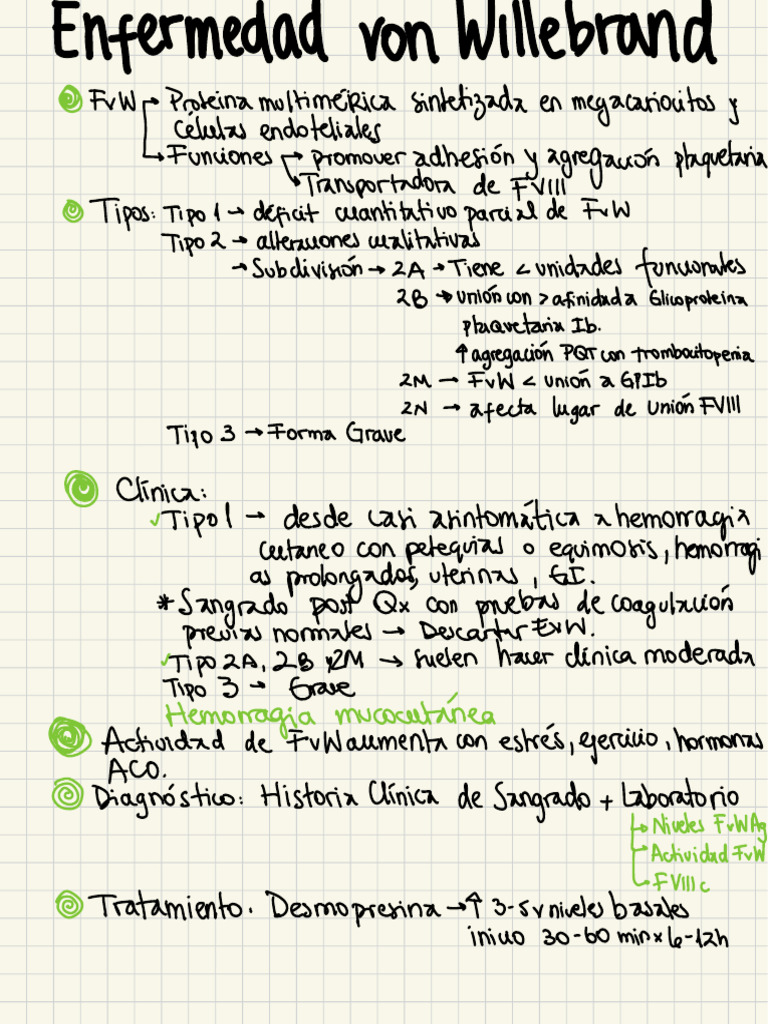 Enfermedad von Willebrand
FvW → Proteina multimérica sintetizada en megacariocitos y
células endoteliales
→ Funciones → promover adhesión y agregación plaquetaria
→ Transportadora de FVIII
Tipos: Tipo 1 → déficit cuantitativo parcial de FvW
Tipo 2 → alteraciones cualitativas
→ Subdivisión → 2A → Tiene < unidades funcionales
2B → unión con > afinidad a Glicoproteina
plaquetaria Ib.
↑ agregación PQT con trombocitopenia
2M → FvW < unión a GPIb
2N → afecta lugar de unión FVIII
Tipo 3 → Forma Grave
Clínica:
✓ Tipo 1 → desde casi asintomática a hemorragia
cutaneo con petequias o equimosis, hemorragi
as prolongados, uterinas, GI.
* Sangrado post Qx con pruebas de coagulación
previas normales → Descartar EvW.
✓ Tipo 2A, 2B y 2M → suelen hacer clínica moderada
Tipo 3 → Grave
Hemorragia mucocutánea
Actividad de FvW aumenta con estrés, ejercicio, hormonas
ACO.
Diagnóstico: Historia Clínica de Sangrado + Laboratorio
→ Niveles FvWAg
→ Actividad FvW
→ FVIIIc
Tratamiento. Desmopresina → ↑ 3-5v niveles basales
inicio 30-60 min x 6-12h